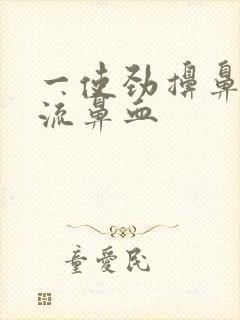 一使劲擤鼻
流鼻血
童愛民